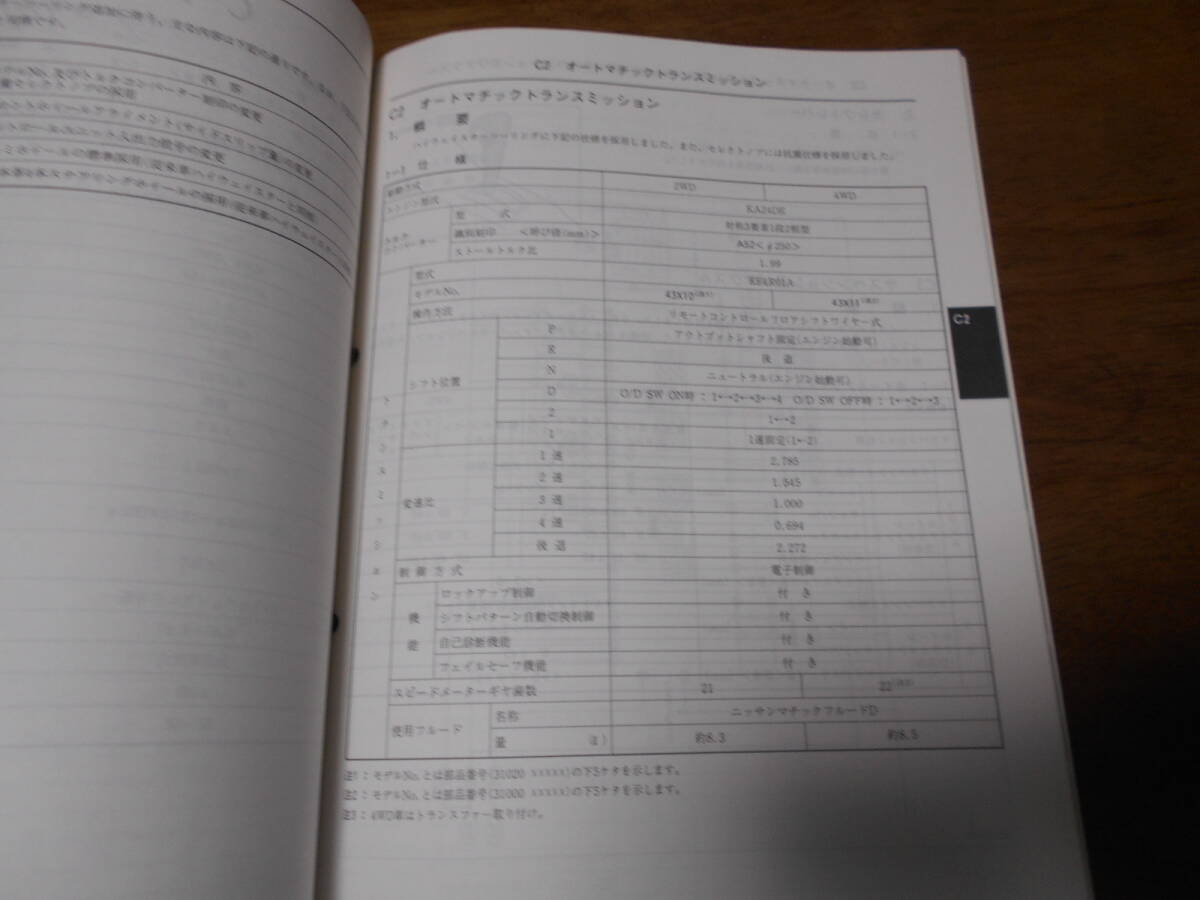 内容
C2 オートマチックトランスミッション
C2 オートマチックトランスミッション
1. 概 要
ハイウェイスターツーリングに下記の仕様を採用しました。また、セレクトノブには抗菌仕様を採用しました。
1-1 仕 様
駆動方式 2WD 4WD
エンジン型式 KA24DE
トルクコンバーター 型 式 対称3要素1段2相型
識別刻印 <呼び径(mm)> A52<φ250>
ストールトルク比 1.99
トランスミッション
型式 RE4R01A
モデルNo. 43X10(注1) 43X11(注2)
操作方式 リモートコントロールフロアシフトワイヤー式
シフト位置 P アウトプットシャフト固定(エンジン始動可)
R 後 退
N ニュートラル(エンジン始動可)
D O/D SW ON時:1←→2←→3←→4 O/D SW OFF時:1←→2←→3
2 1←→2
1 1速固定(1←2)
変速比 1 速 2.785
2 速 1.545
3 速 1.000
4 速 0.694
後 退 2.272
制御方式 電子制御
機能 ロックアップ制御 付 き
シフトパターン自動切換制御 付 き
自己診断機能 付 き
フェイルセーフ機能 付 き
スピードメーターギヤ歯数 21 22
使用フルード 名称 ニッサンマチックフルードD
量 約8.3 約8.5
注1:モデルNo.とは部品番号(31020 xxxxx)の下5ケタを示します。
注2:モデルNo.とは部品番号(31000 xxxxx)の下5ケタを示します。
注3:4WD車はトランスファー取り付け。
C2